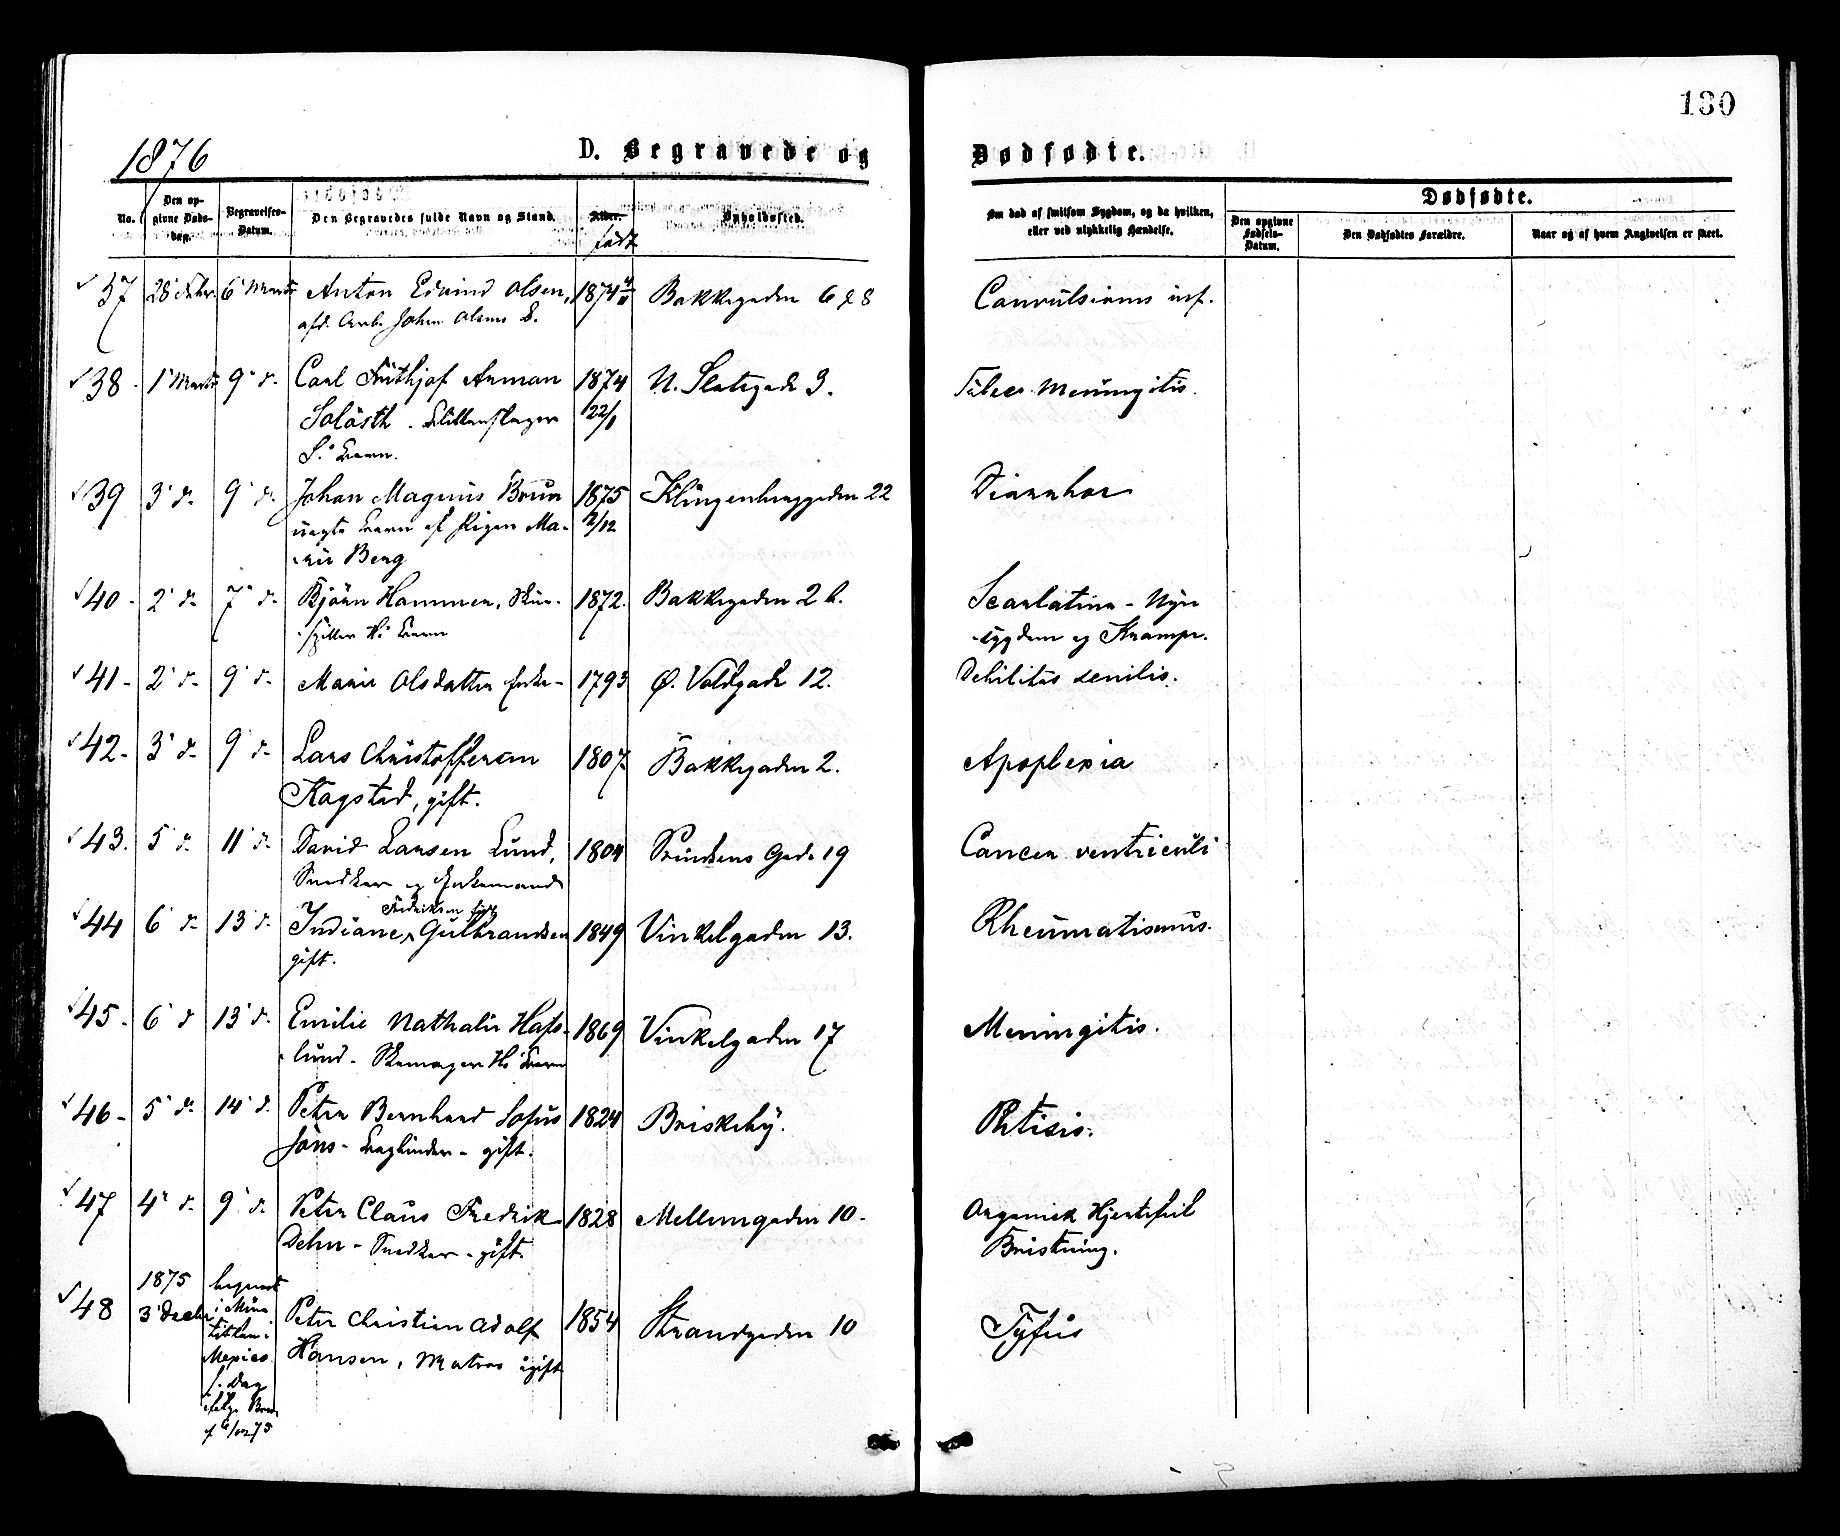 130
1876
D. Begravede og
Dødfødte.
No.
Den op-
givne Døds-
dag.
Begravelses-
Datum.
Den Begravedes fulde Navn og Stand.
Alder.
født
Opholdssted.
Om død af smitsom Sygdom, og da hvilken,
eller ved ulykkelig Hændelse.
Dødfødte.
Den opgivne
Fødsels-
Datum.
Den Dødfødtes Forældre.
Naar og af hvem Angivelsen er skeet.
37 28' Febr. 6' Marts Anton Edvind Olsen, 1874 Bakkegaden 6 & 8 Convulsions inf.
afd. Arb. Johan Olsens S.
38. 1' Marts 9' d. Carl Frithjof Arman 1874 N. Slotsgade 3. Tuber. Meningitis.
Solästh.
22/1
S.' Barn.
39 3' d. 9' d. Johan Magnus Brun 1875 Klingenberggaden 22 Diarrhoe
uægte Barn af Pigen Ma-
2/12
rie Berg
40. 2' d. 7' d. Bjørn Hammer, Skue- 1872. Bakkegaden 2 b. Scarlatina - Nyre
spiller H's Barn
sygdom og Krampe.
41. 2' d. 9' d. Marie Olsdatter Enke 1793 Ø. Voldgade 12. Debilitas senilis.
42. 3' d. 9' d. Lars Christoffersen 1807. Bakkegaden 2. Apoplexia
Kogstad, gift.
43. 5' d. 11' d. David Larsen Lund, 1804 Prindsens Gade 19 Cancer ventriculi
Snedker og Enkemand
Fredriksen født
44 6' d. 13' d. Indiane Gulbrandsen 1849 Vinkelgaden 13. Rheumatismus.
gift.
45. 6' d 13' d. Emilie Nathalie Hafs- 1869 Vinkelgaden 17 Meningitis.
lund. Skomager H's Barn
46. 5' d. 14' d. Peter Bernhard Sofus 1824 Briskeby. Phtisis.
Jöns - Bogbinder - gift.
47 4' d. 9' d. Peter Claus Fredrik 1828 Mellemgaden 10. Organisk Hjertefeil
Dehn - Snedker - gift.
Bristning.
48 1875
3' Decbr
begravet
i Mina
titlan
Mexico
s. Dag
ifølge Brev
af 6/12 75
Peter Christian Adolf 1854 Strandgaden 10 Tyfus
Hansen, Matros ugift